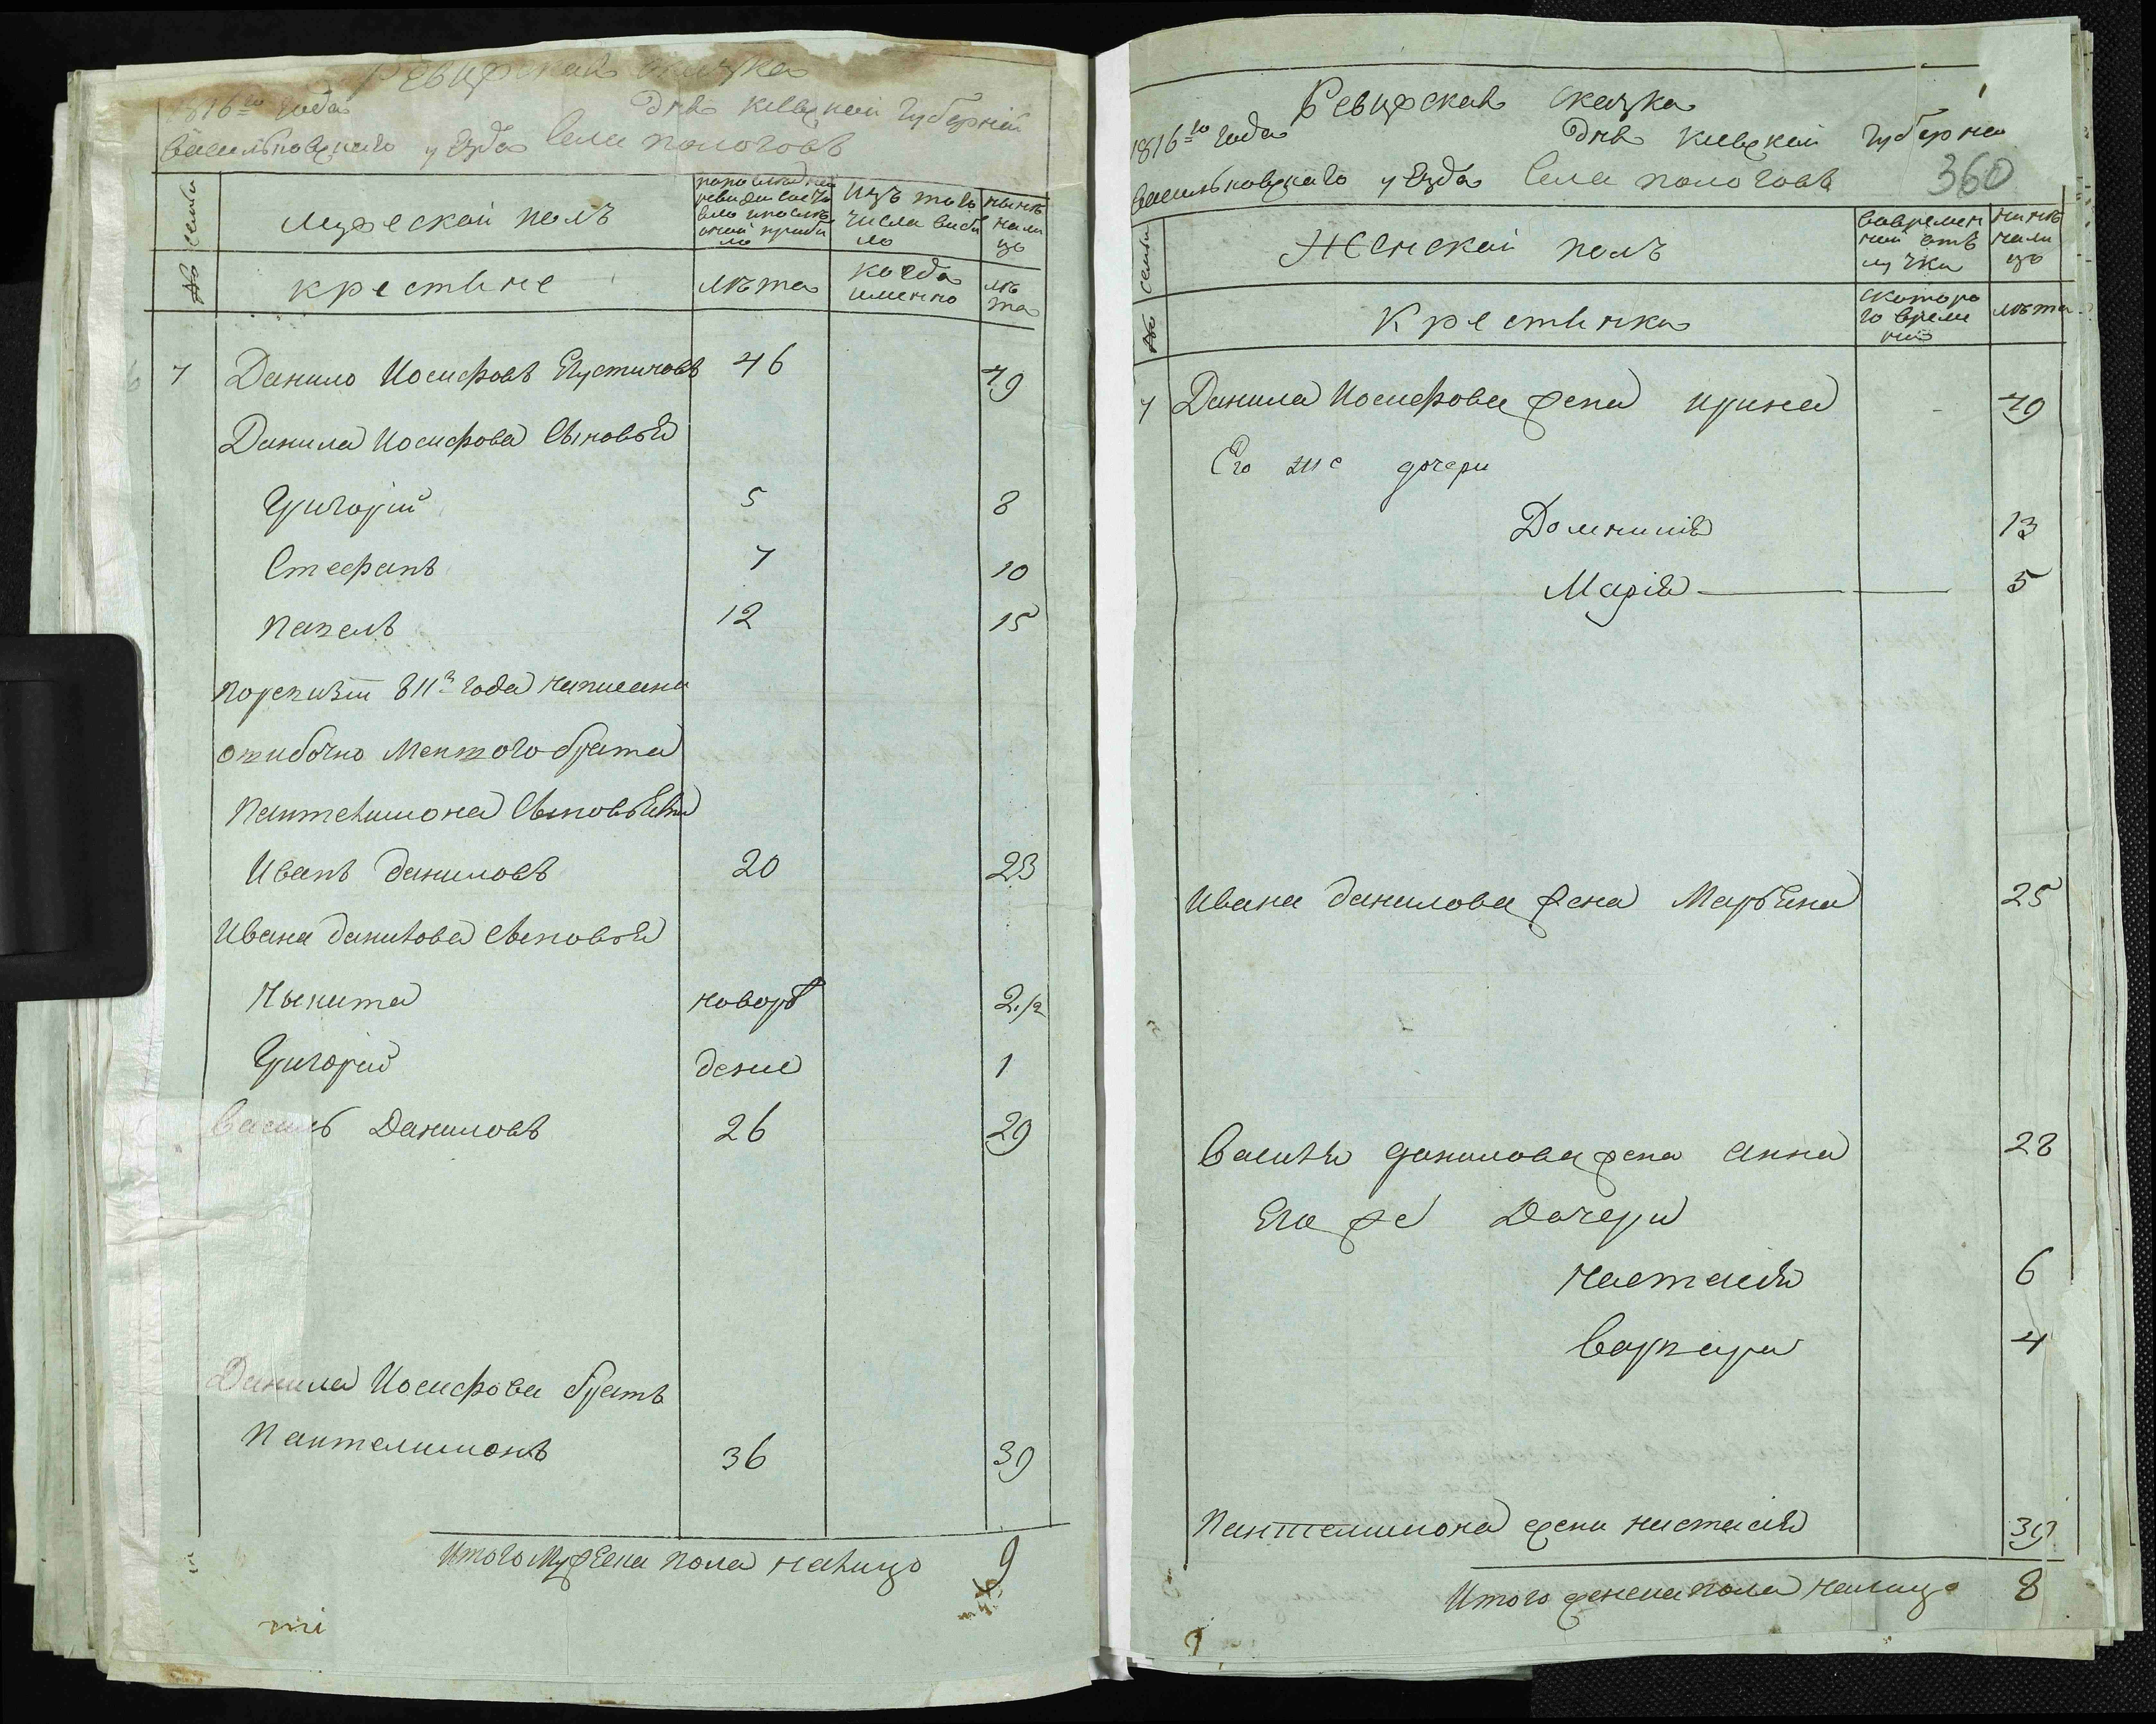 Ревизская сказка
1816го года дня Киевской Губерніи
Васильковского уезда Села Пологовъ
№ семьи
Мужеской полъ
крестяне
по последней
ревизии состо
яло и после
оной прибы
ло
лѣта
Изъ того
числа выбы
ло
когда
именно
нынѣ
нали
цо
лѣ
та
7 Данило Иосифовъ 46 49
Данила Иосифова Сыновья
Григорій 5 8
Стефанъ 7 10
Павелъ 12 15
811го года написани
ошибочно брата
Пантелимона Сыновьями
Иванъ даниловъ 20 23
Ивана данилова Сыновья
Ныкита новоро 2 1/2
Григорій дение 1
Василь Даниловъ 26 29
Данила Иосифова братъ
Пантелимонъ 36 39
Итого Мужеска пола налицо 9
Ревизская сказка
1816го года дня Киевской Губерни
Васильковского уезда Села Пологовъ
360
№ семьи
Женской полъ
Крестянки
Вовремен
ной отъ
лучки
скоторо
го време
ни
нинѣ
нали
цо
лѣта
7 Данила Иосифова жена Ирина - 49
Его же дочери
Домникія 13
Марія 5
Ивана данилова жена Марьяна 25
Василья данилова жена Анна 28
Его же Дочери
Настасія 6
Варвара 4
Пантелимона жена Настасія 39
Итого женска пола налицо 8